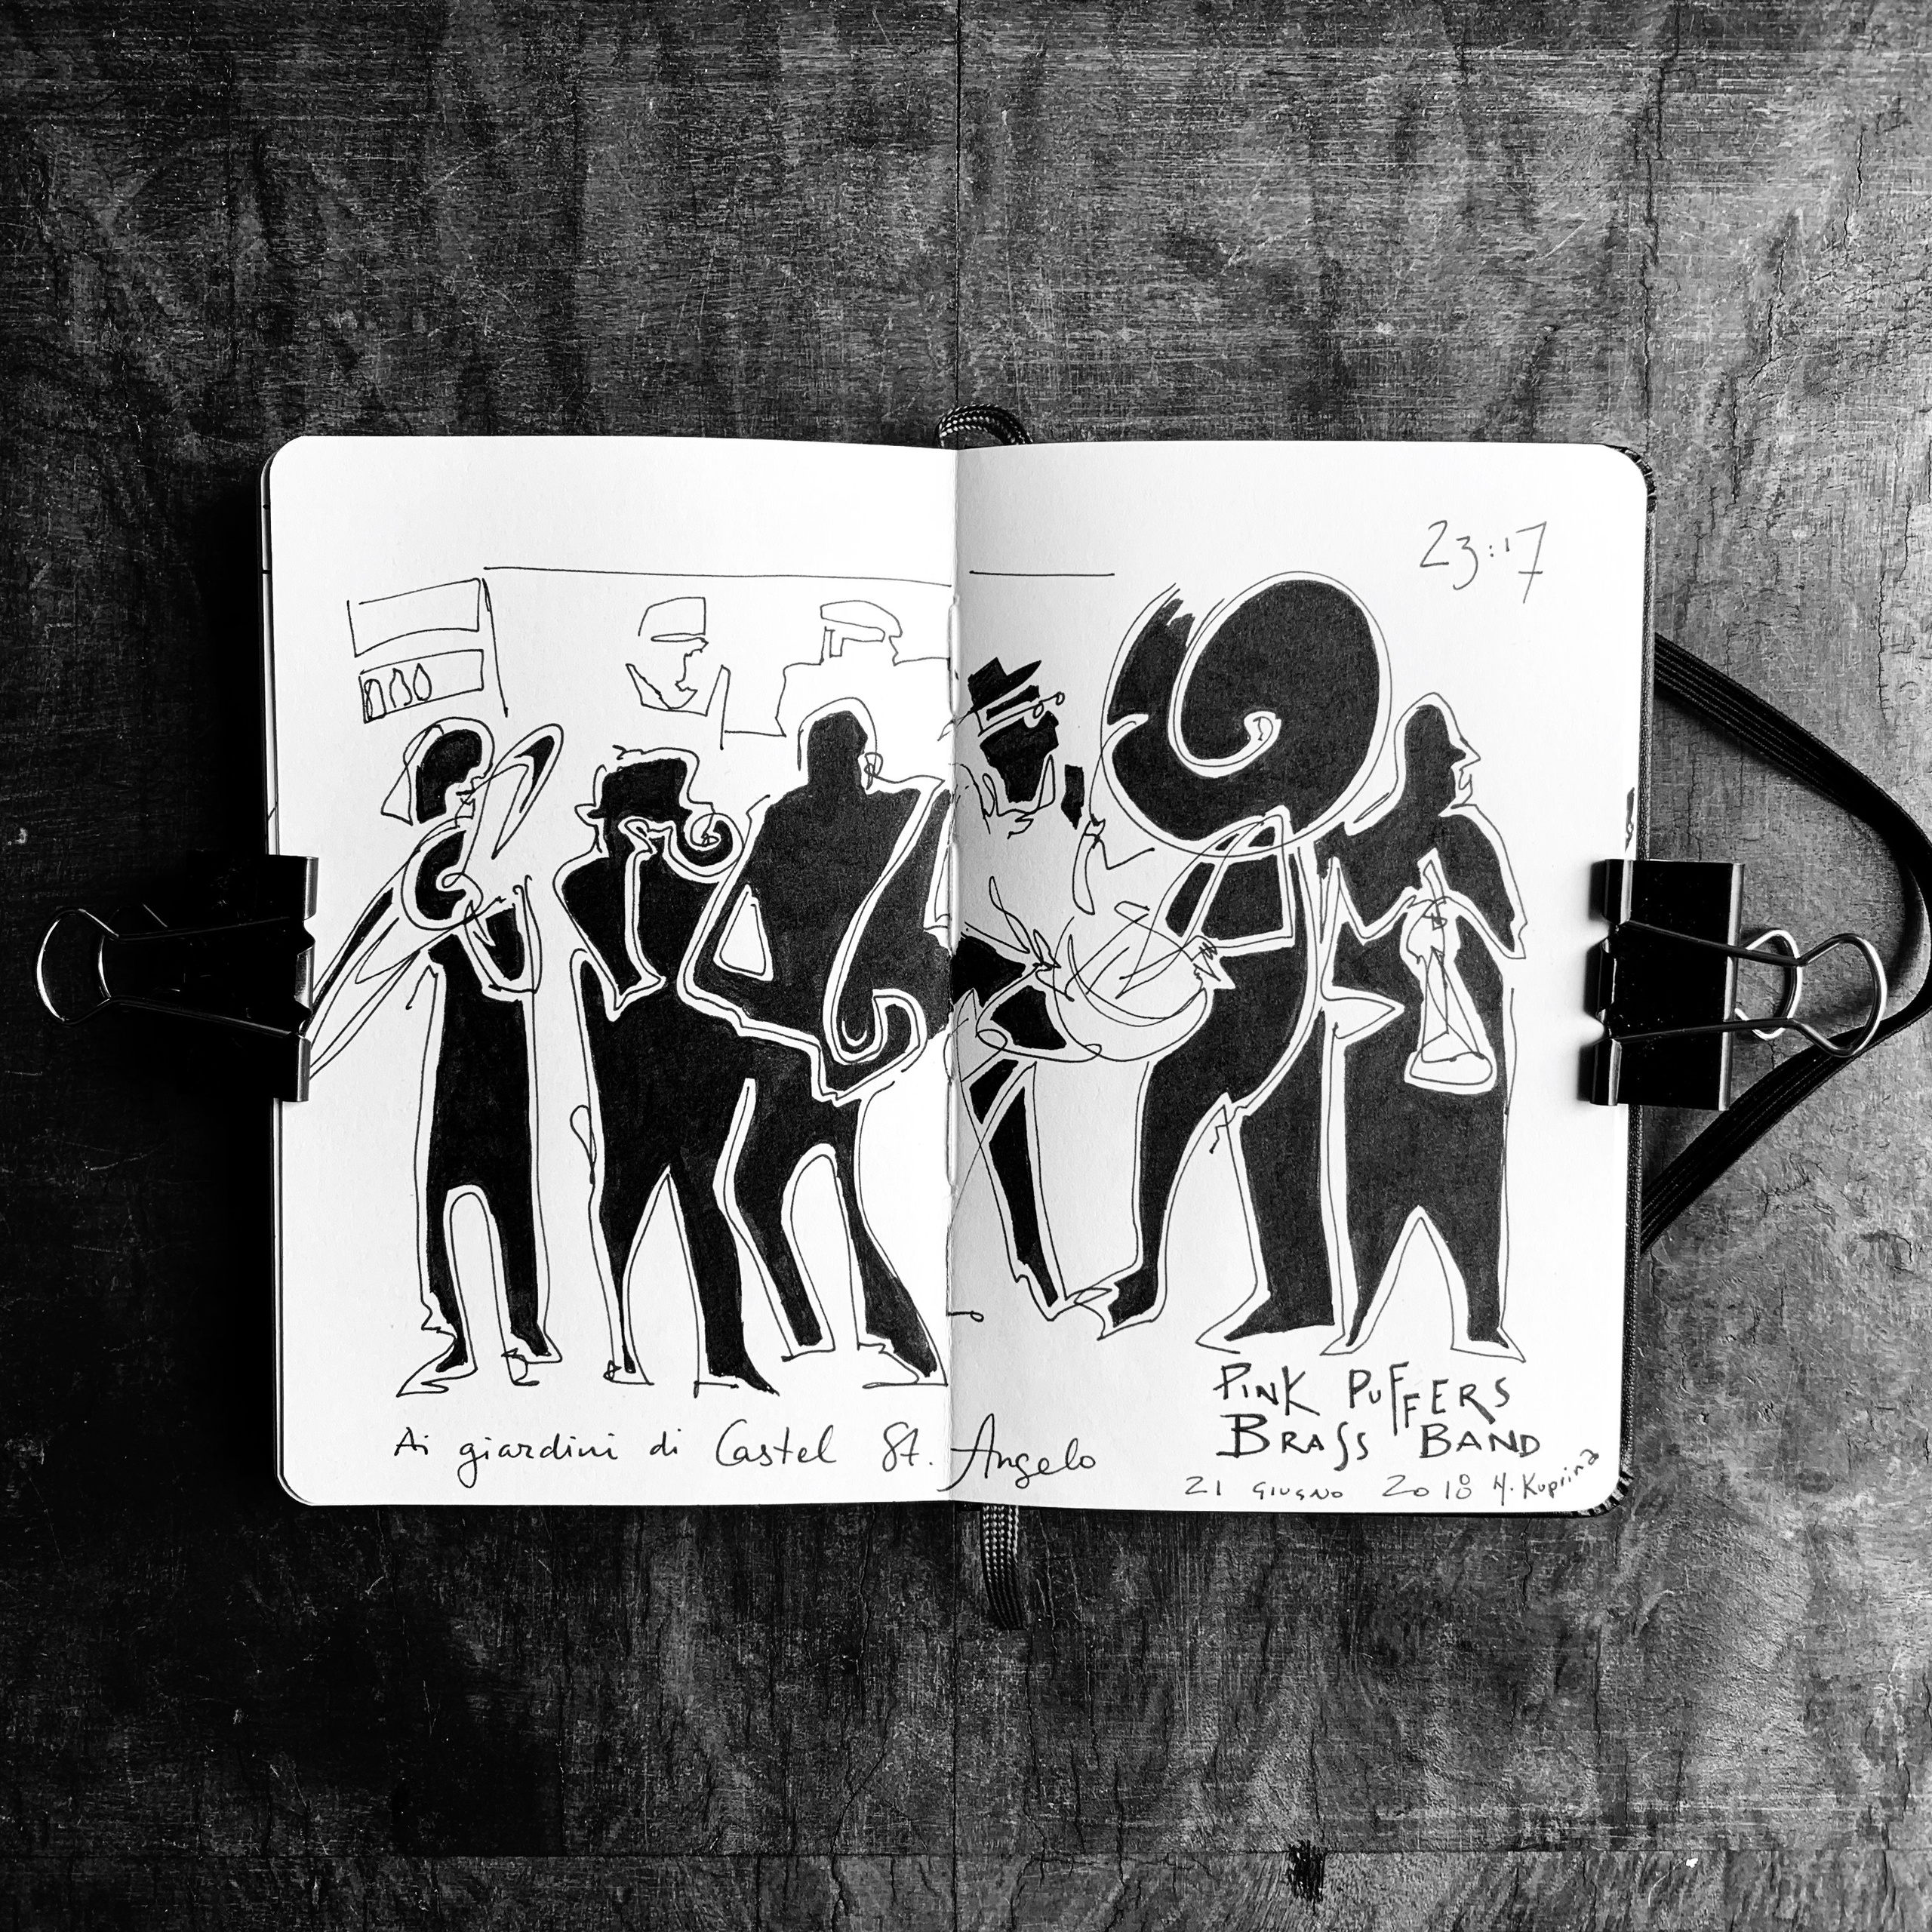 23:17
Ai giardini di Castel St. Angelo
PINK PUFFERS
BRASS BAND
21 GIUGNO 2018 M. Kuprina